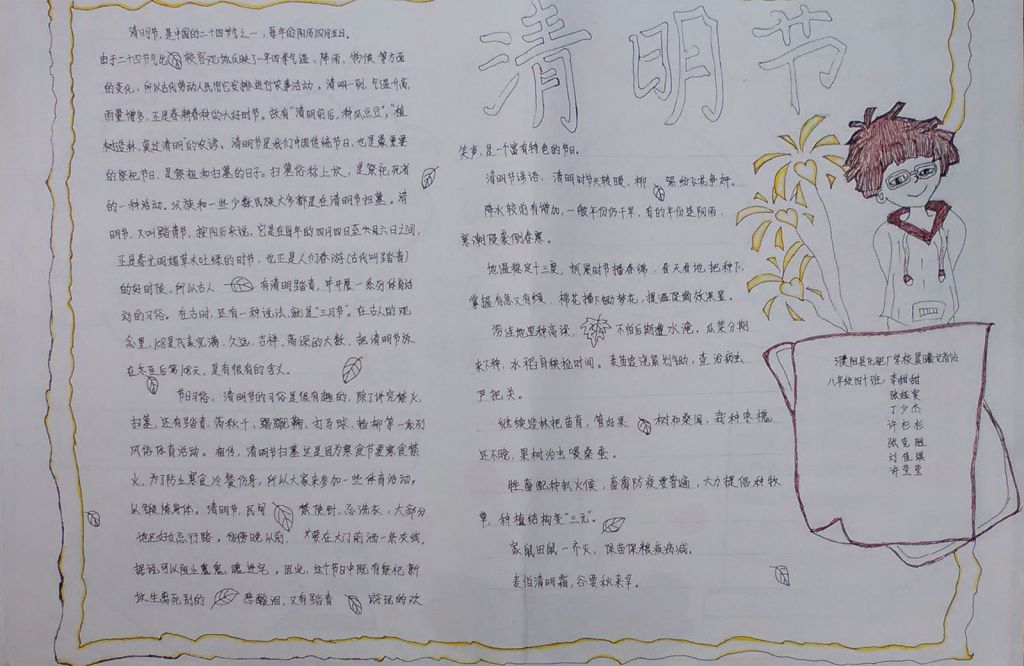 清明节
清明节，是中国的二十四节气之一，每年的阳历四月五日。
由于二十四节气比较客观地反映了一年四季气温、降雨、物候等方面
的变化，所以古代劳动人民用它安排进行农事活动。清明一到，气温升高，
雨量增多，正是春耕春种的大好时节。故有"清明前后，种瓜点豆"，"植
树造林，莫过清明"的农谚。清明节是我们中国传统节日，也是最重要
的祭祀节日，是祭祖和扫墓的日子。扫墓俗称上坟，是祭祀死者
的一种活动。汉族和一些少数民族大多都是在清明节扫墓。清
明节，又叫踏青节，按阳历来说，它是在每年的四月四日至六日之间，
正是春光明媚草木吐绿的时节，也正是人们春游(古代叫踏青)
的好时候，所以古人有清明踏青，并开展一系列体育活
动的习俗。在古时，还有一种说法，就是"三月节"。在古人的观
念里，108是代表完满、久远、吉祥、高深的大数，把清明节放
在冬至后第108天，是有很有的含义。
节日习俗：清明节的习俗是很有趣的，除了讲究禁火，
扫墓，还有踏青、荡秋千、蹴鞠、打马球、插柳等一系列
风俗体育活动。相传，清明节扫墓这是因为寒食节要寒食禁
火，为了防止寒食冷餐伤身，所以大家来参加一些体育活动，
以锻炼身体。清明节，民间禁使针，忌洗衣，大部分
地区妇女忌行路。傍傍晚以前，要在大门前洒一条灰线，
据说可以阻止鬼魂进宅。因此，这个节日中既有祭祀新
坟生离死别的悲酸泪，又有踏青游玩的欢
笑声，是一个富有特色的节日。
清明节谚语：清明时节天转暖，柳缤纷花争妍。
降水较前有增加，一般年份仍干旱，有的年份连阴雨，
寒潮侵袭倒春寒。
地温稳定十三度，抓紧时节播春棉，看天看地把种下，
掌握有急又有缓，棉花播下锄梦花，提温保墒效果显。
涝洼地里种高粱，不怕后期遭水淹，瓜菜分期
来下种，水稻育秧抢时间。麦苗追浇紧划锄，查治病虫
严把关。
继续造林把苗育，管好果树和桑园，栽种枣槐
还不晚，果树治虫喂桑蚕。
牲畜配种抓火候，畜禽防疫要普遍，大力提倡种牧
草，种植结构变"三元"。
家鼠田鼠一齐灭，保苗保粮疾病减。
麦怕清明霜，谷要秋来旱。
濮阳县化肥厂学校晨曦记者站
八年级四十班：李甜甜
丁少杰
许杉杉
张克旭
刘佳琪
许莹莹